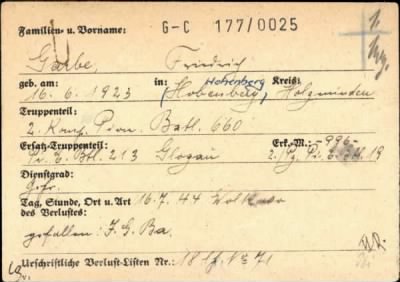 Familien- u. Vorname: G-C 177/0025
Garbe, Friedrich
geb. am: in: Hohenberg Kreis:
16. 6. 1923 (Hobenberg) Holzminden
Truppenteil:
2. Komp. Pion. Batl. 660
Ersatz-Truppenteil: Erk.-M.: -996-
Pi. E. Btl. 213 Glogau 19
Dienstgrad:
Gefr.
Tag, Stunde, Ort u. Art 16.7.44
des Verlustes:
gefallen: J. G. Ba.
Urschriftliche Verlust-Listen Nr.: 18 71